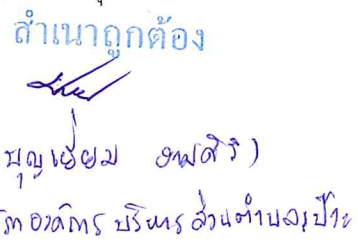 สำเนาถูกต้อง
บุญเยี่ยม งามศิริ)
องค์การบริหารส่วนตำบล